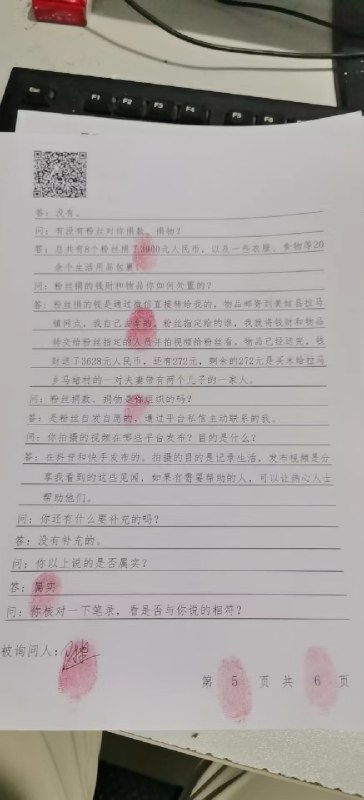 Esc F1 F2 F3 F4 F5 F6 F7
答：没有。
问：有没有粉丝对你捐款、捐物？
答：总共有8个粉丝捐了3900元人民币，以及一些衣服、食物等20
余个生活用品包裹。
问：粉丝捐的钱财和物品你如何处置的？
答：粉丝捐的钱是通过微信直接转给我的，物品邮寄到美姑县拉马
镇网点，我自己去拿的。粉丝指定给的谁，我就将钱财和物品
转交给粉丝指定的人员并拍视频给粉丝看。物品已经送完，钱
财送了3628元人民币，还有272元，剩余的272元是买米给拉马
乡马堵村的一对夫妻带有两个儿子的一家人。
问：粉丝捐款、捐物是你组织的吗？
答：是粉丝自发自愿的，通过平台私信主动联系的我。
问：你拍摄的视频在哪些平台发布？目的是什么？
答：在抖音和快手发布的。拍摄的目的是记录生活，发布视频是分
享我看到的这些见闻，如果有需要帮助的人，可以让热心人士
帮助他们。
问：你还有什么要补充的吗？
答：没有补充的。
问：你以上说的是否属实？
答：属实
问：你核对一下笔录，看是否与你说的相符？
被询问人：
第 5 页 共 6 页